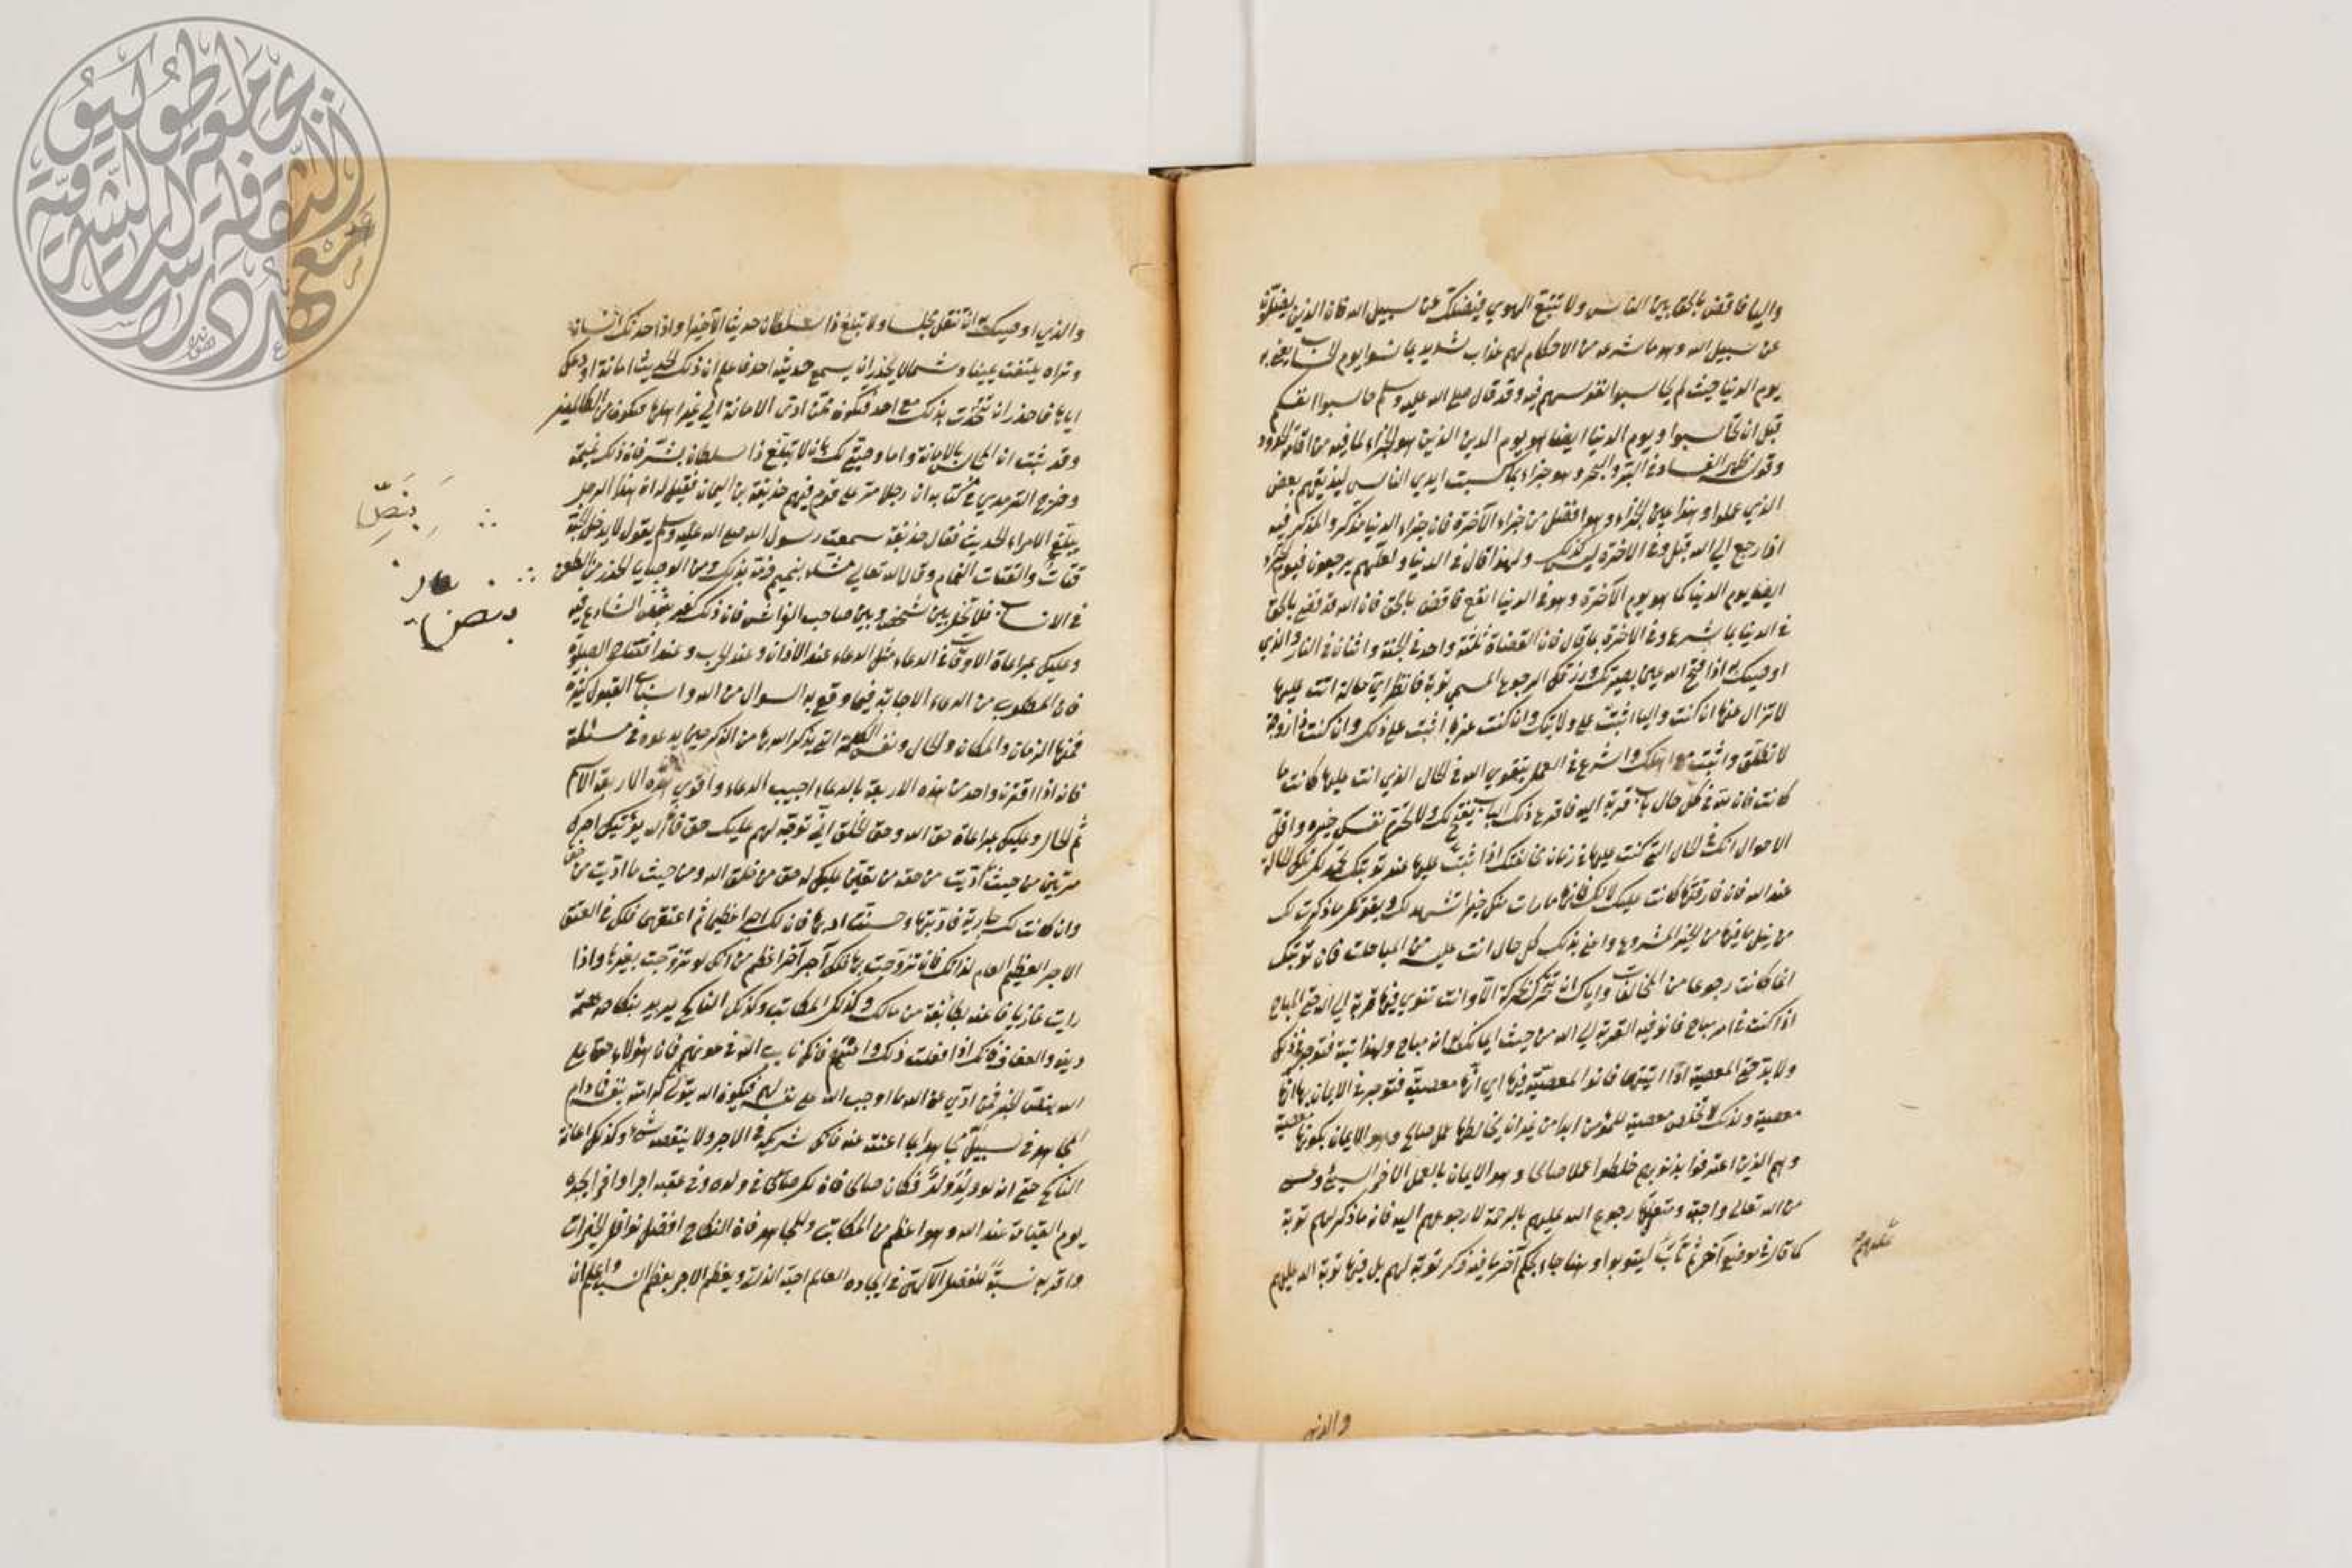 واليا فاقض بالحق بين الناس ولا تتبع الهوي فيضلك عن سبيل الله فان الذين يضلون
عن سبيل الله وهو ما شرعه من الاحكام لهم عذاب شديد بما نسوا يوم الحساب يعني به
يوم الدنيا حيث لم يحاسبوا نفوسهم فيه وقد قال صلي الله عليه وسلم حاسبوا انفسكم
قبل ان تحاسبوا ويوم الدنيا ايضا هو يوم الدين الذين هو الجزاء لما فيه من اقامة الحدود
وقوله ظهر الفساد في البر والبحر وهو جزاء بما كسبت ايدي الناس ليذيقهم بعض
الذي عملوا وهذا عين الجزاء وهو افضل من جزاء الآخرة فان جزاء الدنيا مذكر والمذكر فيه
اذا رجع الي الله قبل وفي الاخرة ليس كذلك ولهذا قال في الدنيا ولعلهم يرجعون فيوم الجزاء
ايضا يوم الدنيا كما هو يوم الآخرة وهو في الدنيا انفع فاقض بالحق فان الله قد قضي بالحق
في الدنيا بما شرعه وفي الاخرة بما قال فان القضاة ثلثة واحد في الجنة واثنان في النار والذي
اوصيك به اذا فتح الله عين بصيرتك ورزقك الرجوع المسمي توبة فانظر اي حالة انت عليها
لا تزال عنها ان كنت واليا اثبت علي ولايتك وان كنت عزبا اثبت علي ذلك وان كنت ذا زوجة
لا تطلق واثبت مع اهلك واشرع في العمل بتقوي الله في الحال الذي انت عليها كانت ما
كانت فان لله في كل حال باب قربة اليه فاقرع ذلك الباب يفتح لك ولا تحرم نفسك خيره واقل
الاحوال انك في الحال التي كنت عليها في زمان مخالفتك اذا ثبتّ عليها عند توبتك تحمدك تلك الحالة
عند الله فان فارقتها كانت عليك لا لك فانها ما رات منك خيرا تشهد لك به
من نيل ما فيها من الخير المشروع واعني بذلك كل حال انت عليه من المباحات فان توبتك
انما كانت رجوعا من المخالفات واياك ان تتحرك بحركة الا وانت تنوي فيها قربة الي الله حتي المباح
اذا كنت في امر مباح فانو فيه القربة الي الله من حيث ايمانك به انه مباح ولهذا فتوجر في ذلك
ولا بد حتي المعصية اذا اتيتها فانو المعصية فيها اي انها معصية فتوجر في الايمان بها انها
معصية ولذلك لا تخلص معصية لمؤمن ابدا من غير ان يخالطها عمل صالح وهو الايمان بكونها معصية
وهم الذين اعترفوا بذنوبهم خلطوا عملا صالحا وهو الايمان بالعمل الاخر السيئ وعسي
من الله تعالي واجبة ومتعلقها رجوع الله عليهم بالرحمة لا رجوعهم اليه فانه ما ذكر لهم توبة
كما قال في موضع آخر ثم تاب ليتوبوا وهنا جاء بحكم آخر ما فيه ذكر توبة لهم بل فيها توبة الله عليهم
عليهم
والذي
والذي اوصيك به ان تنقل مجلسا ولا تبلغ ذا سلطان حديثا الا خيرا واذا حدثك انسان
وتراه يلتفت يمينا وشمالا يحذر ان يسمع حديثه احد فاعلم ان ذلك الحديث امانة اودعك
اياها فاحذر ان تتحدث بذلك مع احد فتكون ممن ادي الامانة الي غير اهلها فتكون من الظالمين
وقد ثبت ان المجالس بالامانة واما وصيتي لك بان لا تبلغ ذا سلطان بشر فان ذلك نميمة
وخرج الترمدي في كتابه ان رجلا مر علي قوم فيهم حذيفة بن اليمان فقيل له ان هذا الرجل
يبلغ الامراء الحديث فقال حذيفة سمعت رسول الله صلي الله عليه وسلم يقول لا يدخل الجنة
قتات والقتات النمام وقال الله تعالي مشاء بنميم فذمه بذلك ومن الوصايا الحذر من الطعن
في الانساب فلا تحل بين شخص وبين صاحب الفراش فان ذلك كفر بنص الشارع فيه
وعليك بمراعاة الاوقات في الدعاء مثل الدعاء عند الاذان وعند الحرب وعند افتتاح الصلوة
فان المطلوب من الدعاء الاجابة فيما وقع به السوال من الله واسباب القبول كثيرة
فمنها الزمان والمكان والحال ونفس الكلمة التي يذكر الله بها من الذكر حين يدعوه في مسئلة
فانه اذا اقترن واحد من هذه الاربعة بالدعاء اجيب الدعاء واقوي هذه الاربعة الاسم
ثم الحال وعليك بمراعاة حق الله وحق الخلق اذا توجه لهم عليك حق فان الله يؤتيك اجرك
مرتين من حيث ما اديت من حقه من تعين عليك له حق من خلق الله ومن حيث ما اديت من حق
وان كانت لك جارية فادبتها واحسنت ادبها فان لك اجرا عظيما ثم اعتقها فلك في العتق
الاجر العظيم العام لذاتك فان تزوجت بها فلك اجر آخر اعظم من انك لو تزوجت بغيرها واذا
رايت غازيا فاعنه بطائفة من مالك وكذلك المكاتب وكذلك الناكح يريد بنكاحه عصمة
دينه والعفاف فانك اذا فعلت ذلك واعنتهم فانك نايب الله في عونهم فان هؤلاء حق علي
الله بنص الخبر فمن ادي عن الله ما اوجبه الله علي نفسه لهم فيكون الله يتولي كرامته بنفسه فما دام
المجاهد في سبيل الله مجاهدا بما اعنته عنه فانك شريكه في الاجر ولا ينقصه شيء وكذلك اعانة
الناكح حتي انه لو ولد له ولد فكان صالحا فان لك في ولده وفي عقبه اجرا وافرا تجده
يوم القيامة عند الله وهو اعظم من المكاتب والمجاهد فان النكاح افضل نوافل الخيرات
واقربه نسبة للفضل الالهي في ايجاده العالم ويعظم الاجر بعظم النسب واعلم ان
بنص
بنص